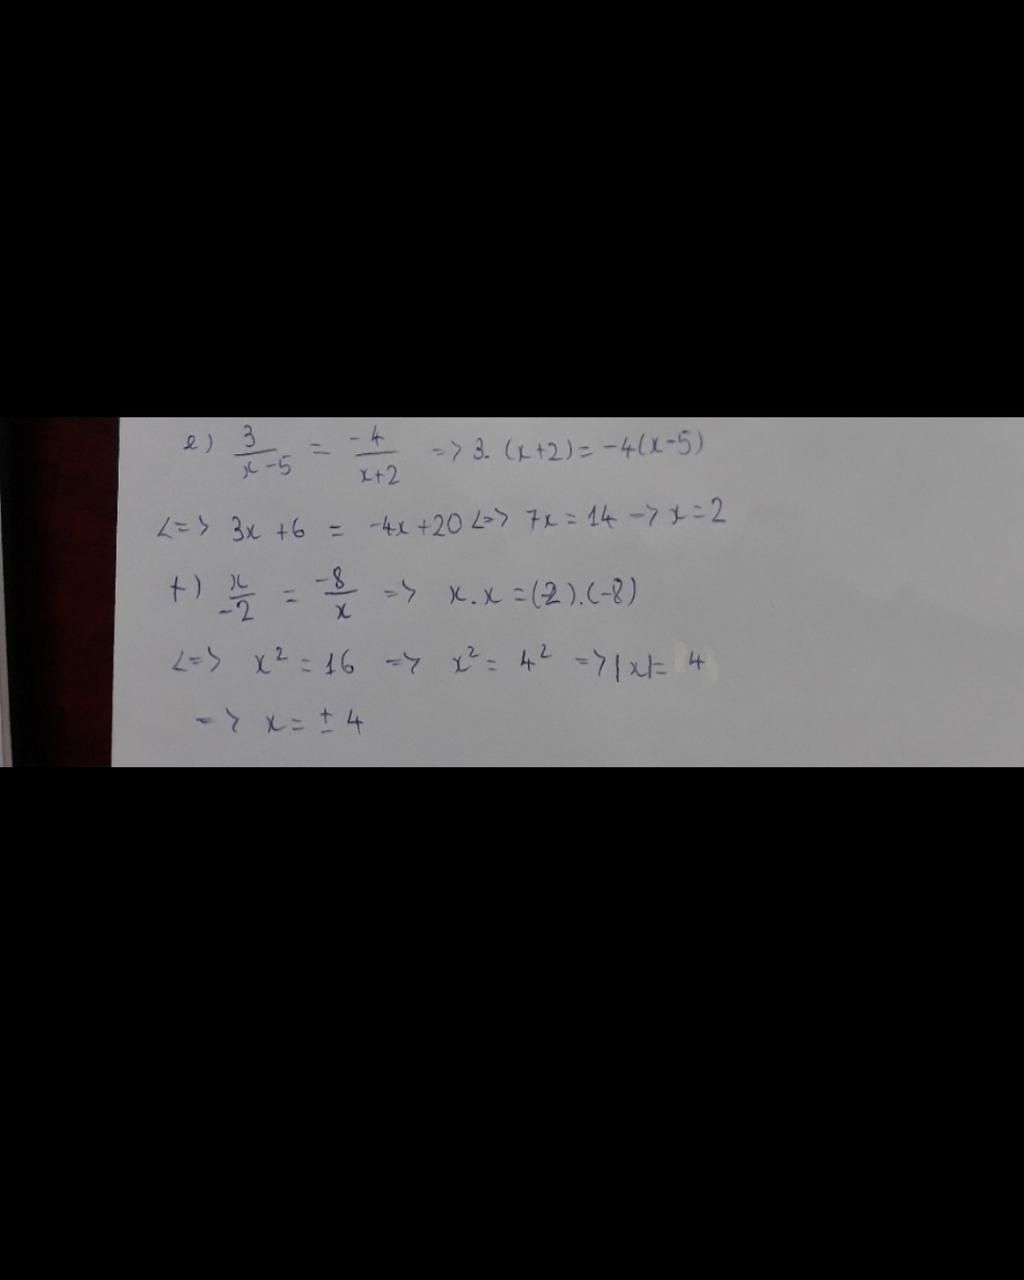 e) 3/(x-5) = -4/(x+2) => 3. (x+2) = -4(x-5)
<=> 3x + 6 = -4x + 20 <=> 7x = 14 -> x = 2
f) x/-2 = -8/x => x.x = (-2).(-8)
<=> x² = 16 => x² = 4² => |x| = 4
=> x = ± 4